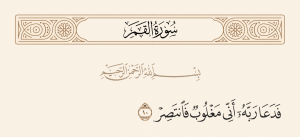 سُورَةُ القَمَرِ
بِسْمِ ٱللَّهِ ٱلرَّحْمَٰنِ ٱلرَّحِيمِ
فَدَعَا رَبَّهُۥٓ أَنِّي مَغْلُوبٌ فَٱنتَصِرْ ١٠